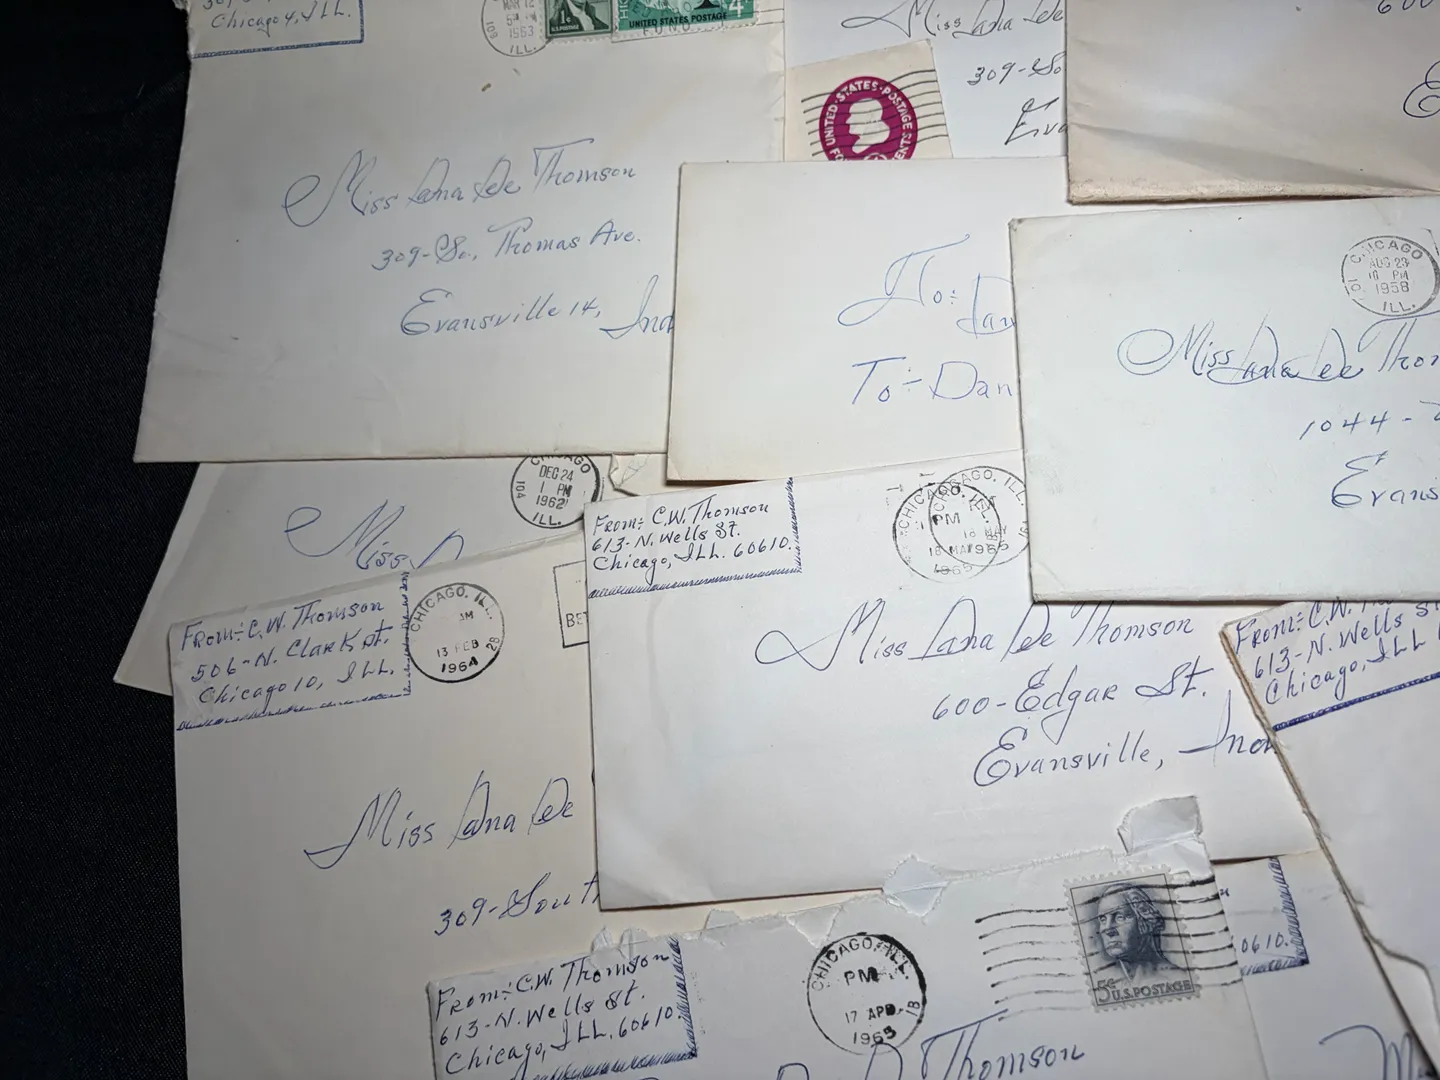 Chicago 4, ILL.
MAR 12
5 PM
1963
ILL.
1¢
UNITED STATES POSTAGE 4¢
Miss Dana De Thomson
309-So., Thomas Ave.
Evansville 14, Ind
Miss Dana De
309-So
Eva
UNITED · STATES · POSTAGE
600
E
To÷ Dan
To÷ Dan
CHICAGO
AUG 23
PM
1958
ILL.
101
Miss Dana Dee Thom
1044-
Evans
CHICAGO
DEC 24
1 PM
1962
ILL.
104
Miss. D
From÷ C.W. Thomson
506-N. Clark St.
Chicago 10, ILL.
CHICAGO, ILL.
13 FEB
1964
2B
BE
Miss Dana De
309-South
From÷ C.W. Thomson
613-N. Wells St.
Chicago, ILL. 60610.
CHICAGO, ILL.
PM
18 MAY
1965
Miss Dana De Thomson
600-Edgar St.
Evansville, Ind.
From÷ C.W. Tho
613-N. Wells St
Chicago, ILL
From÷ C.W. Thomson
613-N. Wells St.
Chicago, ILL. 60610.
CHICAGO, ILL.
PM
17 APR
1965
1B
5¢ U.S. POSTAGE
0610.
D Thomson
M